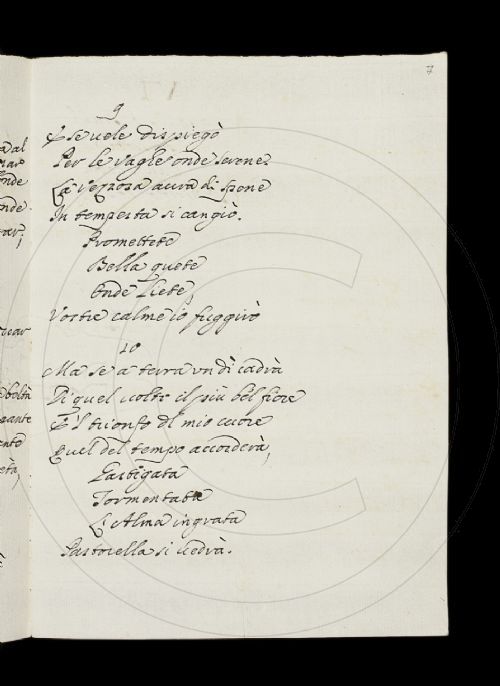 7
9
E se vele dispiegò
Per le vaghe onde serene
La vezzosa aura di spene
In tempesta si cangiò.
Promettete
Bella quete
Onde liete,
Vostre calme io fuggirò
10
Ma se a terra un dì cadrà
Di quel volto il più bel fiore
E 'l trionfo del mio cuore
Quel del tempo accorderà,
Castigata
Tormentata
L'Alma ingrata
Pastorella si vedrà.